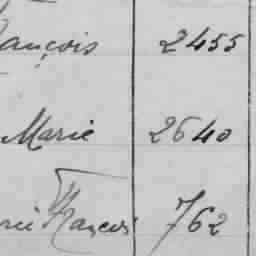 ançois 2455
Marie 2640
rie François 762